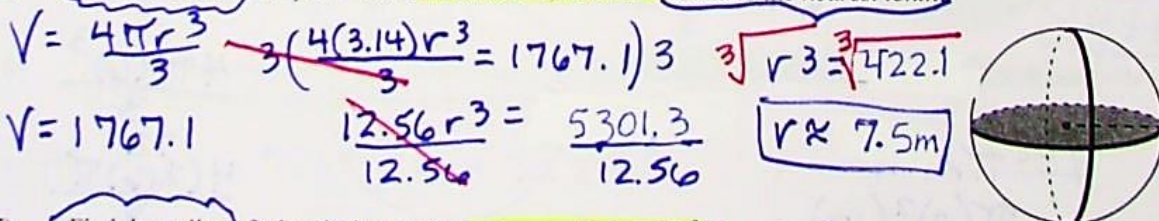 V = 4πr³/3
3(4(3.14)r³/3 = 1767.1)3
∛r3 = ∛422.1
V = 1767.1
12.56r³/12.56 = 5301.3/12.56
r ≈ 7.5m